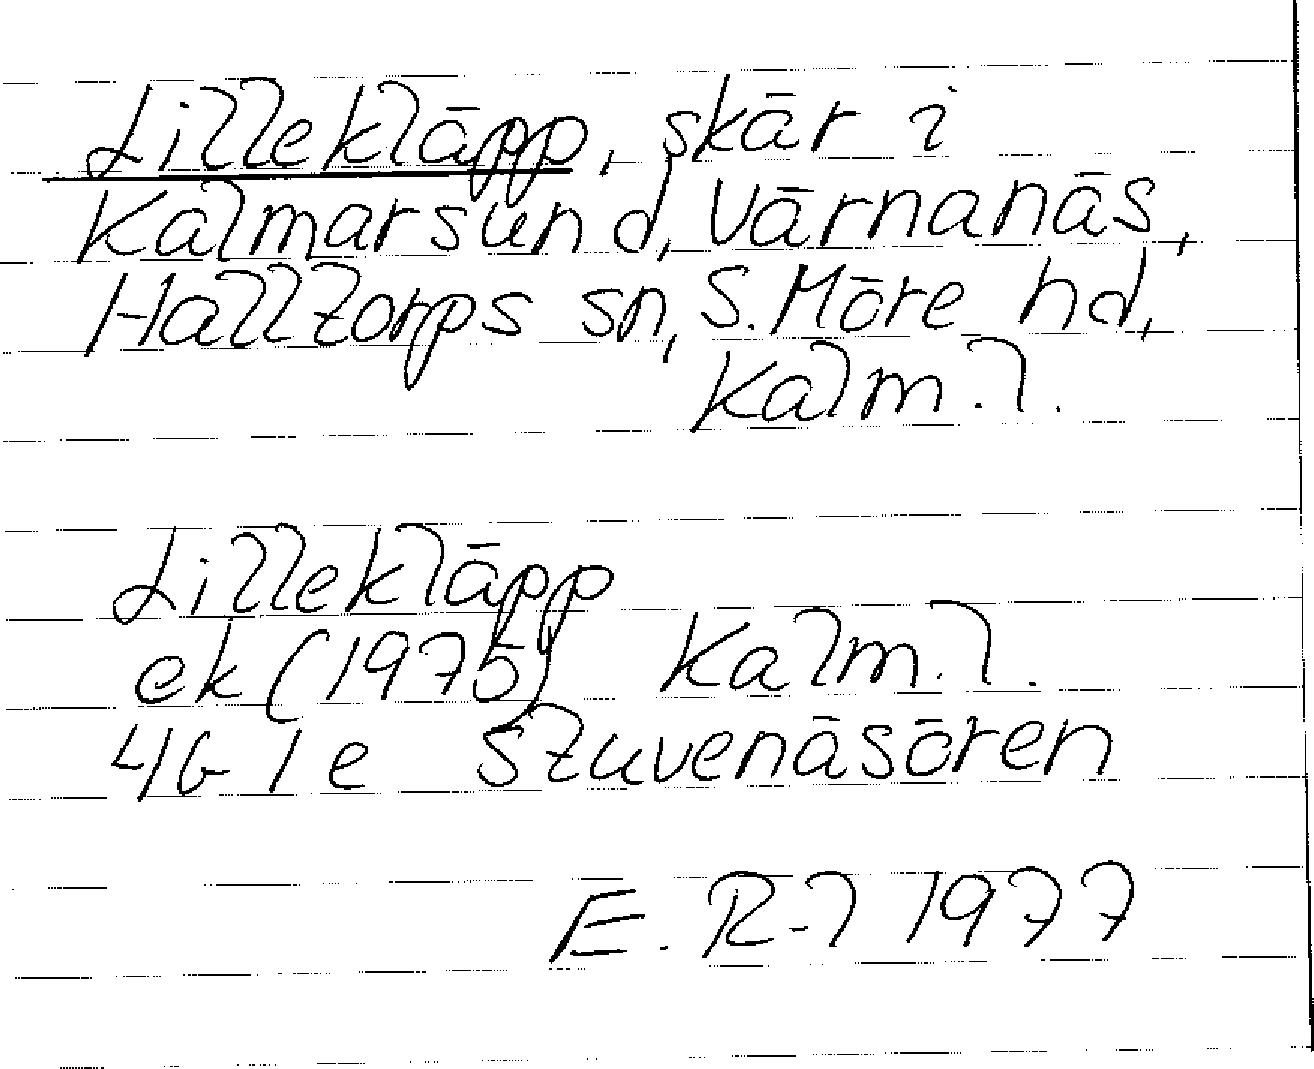 Lilleklāpp, skār i
Kalmarsund, Vārnanās,
Halltorps sn, S. Mōre hd,
Kalm. l.
Lilleklāpp
ek (1975) Kalm. l.
4G 1e Stuvenāsōren
E. R-l 1977